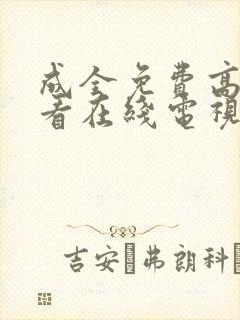 成全免费高
看在线電視
吉安·弗朗科·